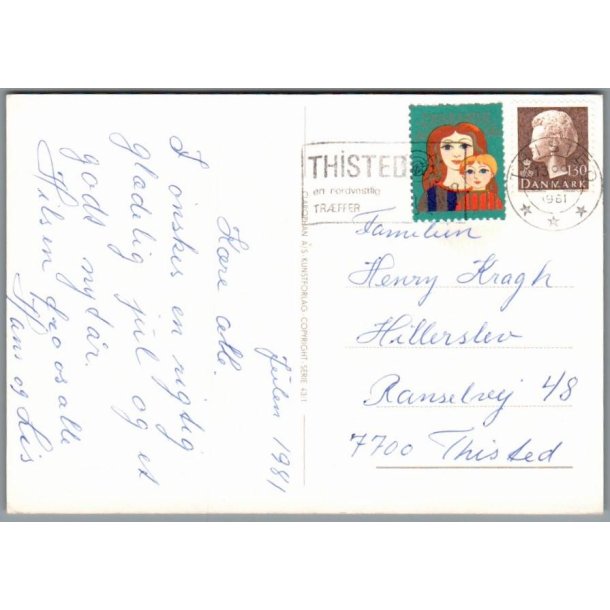 Julen 1981
Kære alle.
I ønskes en rigtig
glædelig jul og et
gods nytår.
Hilsen fra os alle
Hans og Lis
THISTED
en nordvestlig
TRÆFFER
130
DANMARK
1981
Familien
Henry Kragh
Hillerslev
Ranselvej 48
7700 Thisted
A/S KUNSTFORLAG COPYRIGHT SERIE 43:1